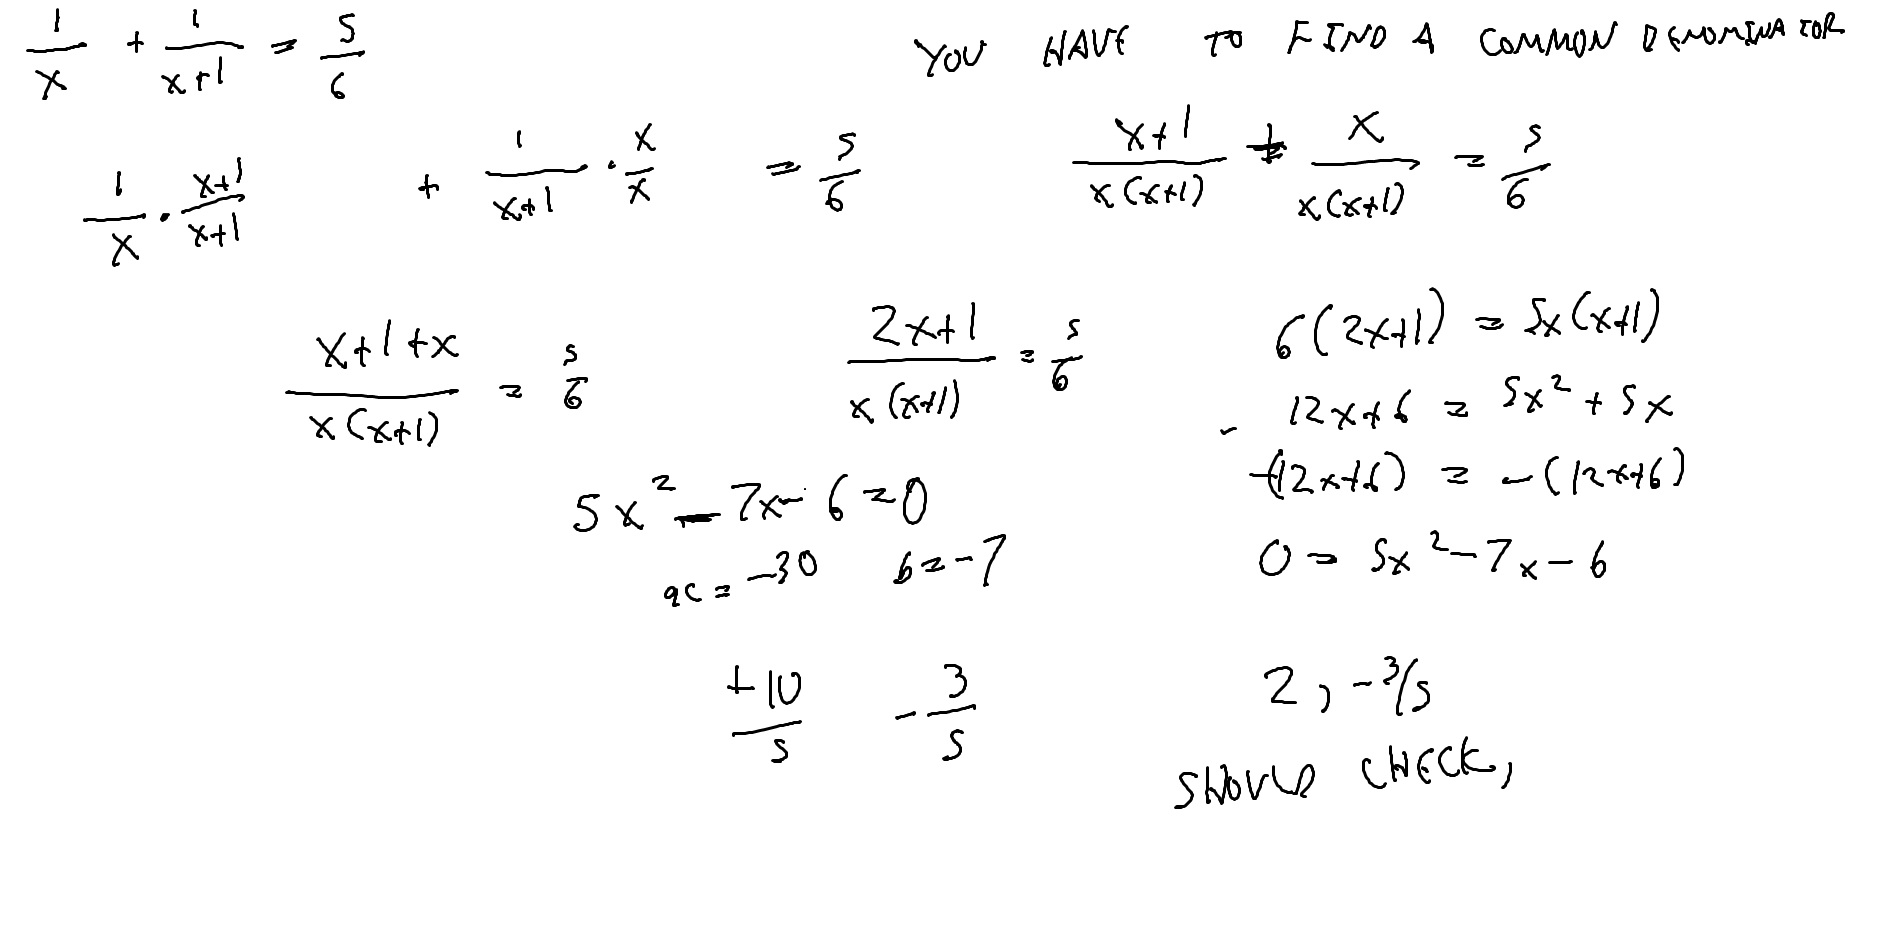 1/x + 1/x+1 = 5/6
YOU HAVE TO FIND A COMMON DENOMINATOR
1/x · x+1/x+1 + 1/x+1 · x/x = 5/6
x+1/x(x+1) + x/x(x+1) = 5/6
x+1+x/x(x+1) = 5/6
2x+1/x(x+1) = 5/6
6(2x+1) = 5x(x+1)
12x+6 = 5x² + 5x
-(12x+6) = -(12x+6)
0 = 5x² - 7x - 6
5x² - 7x - 6 = 0
ac = -30 b = -7
+10/5 -3/5
2, -3/5
SHOULD CHECK,